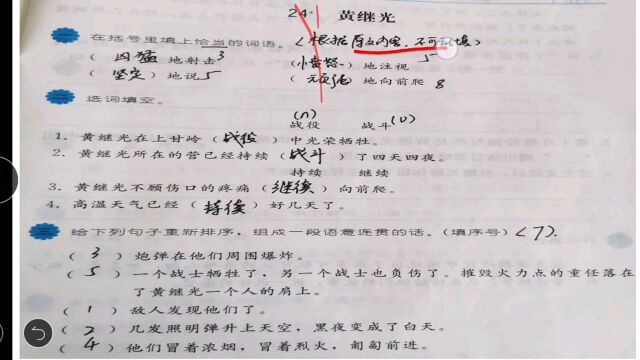 24 黄继光
一 在括号里填上恰当的词语。(根据原文内容,不可乱填)
(凶猛)地射击 3 (愤怒)地注视 5
(坚定)地说 5 (顽强)地向前爬 8
二 选词填空。
(n) (v)
战役 战斗
1. 黄继光在上甘岭(战役)中光荣牺牲。
2. 黄继光所在的营已经持续(战斗)了四天四夜。
持续 继续
3. 黄继光不顾伤口的疼痛(继续)向前爬。
4. 高温天气已经(持续)好几天了。
三 给下列句子重新排序,组成一段语意连贯的话。(填序号)<7>.
(3)炮弹在他们周围爆炸。
(5)一个战士牺牲了,另一个战士也负伤了。摧毁火力点的重任落在
了黄继光一个人的肩上。
(1)敌人发现他们了。
(2)几发照明弹升上天空,黑夜变成了白天。
(4)他们冒着浓烟,冒着烈火,匍匐前进。